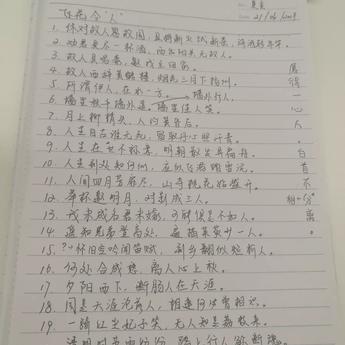 飞花令"人"
21/06/2009
1. 休对故人思故国，且将新火试新茶，诗酒趁年华。
2. 劝君更尽一杯酒，西出阳关无故人。
3. 故人具鸡黍，邀我至田家。
4. 故人西辞黄鹤楼，烟花三月下扬州。
5. 所谓伊人，在水一方。
6. 墙里秋千墙外道，墙里佳人笑。
墙外行人，
7. 月上柳梢头，人约黄昏后。
8. 人生自古谁无死，留取丹心照汗青。
9. 人生在世不称意，明朝散发弄扁舟。
10. 人生到处知何似，应似飞鸿踏雪泥。
11. 人间四月芳菲尽，山寺桃花始盛开。
12. 举杯邀明月，对影成三人。
13. 我未成名君未嫁，可能俱是不如人。
14. 遥知兄弟登高处，遍插茱萸少一人。
15. 怀旧空吟闻笛赋，到乡翻似烂柯人。
16. 何处合成愁，离人心上秋。
17. 夕阳西下，断肠人在天涯。
18. 同是天涯沦落人，相逢何必曾相识。
19. 一骑红尘妃子笑，无人知是荔枝来。
清明时节雨纷纷，路上行人欲断魂。
得
一
心
人
白
首
不
相